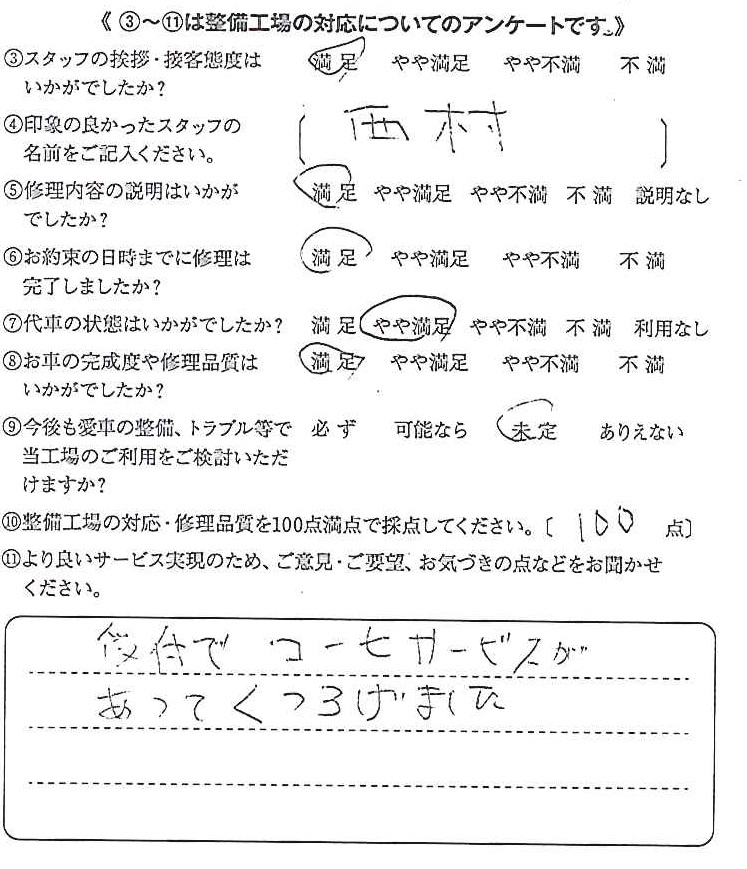 《 ③～⑪は整備工場の対応についてのアンケートです。》
③スタッフの挨拶・接客態度は 満 足 やや満足 やや不満 不 満
いかがでしたか？
④印象の良かったスタッフの 〔 西村 〕
名前をご記入ください。
⑤修理内容の説明はいかが 満 足 やや満足 やや不満 不 満 説明なし
でしたか？
⑥お約束の日時までに修理は 満 足 やや満足 やや不満 不 満
完了しましたか？
⑦代車の状態はいかがでしたか？ 満 足 やや満足 やや不満 不 満 利用なし
⑧お車の完成度や修理品質は 満 足 やや満足 やや不満 不 満
いかがでしたか？
⑨今後も愛車の整備、トラブル等で 必 ず 可能なら 未 定 ありえない
当工場のご利用をご検討いただ
けますか？
⑩整備工場の対応・修理品質を100点満点で採点してください。〔 100 点〕
⑪より良いサービス実現のため、ご意見・ご要望、お気づきの点などをお聞かせ
ください。
受付で コーヒサービスが
あってくつろげました